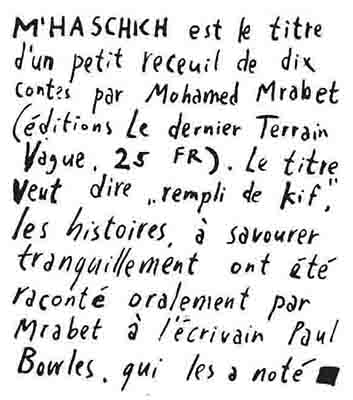 M'HASCHICH est le titre
d'un petit receuil de dix
contes par Mohamed Mrabet
(éditions Le dernier Terrain
Vague, 25 FR). Le titre
Veut dire „rempli de kif,"
les histoires, à savourer
tranquillement ont été
raconté oralement par
Mrabet à l'écrivain Paul
Bowles, qui les a noté